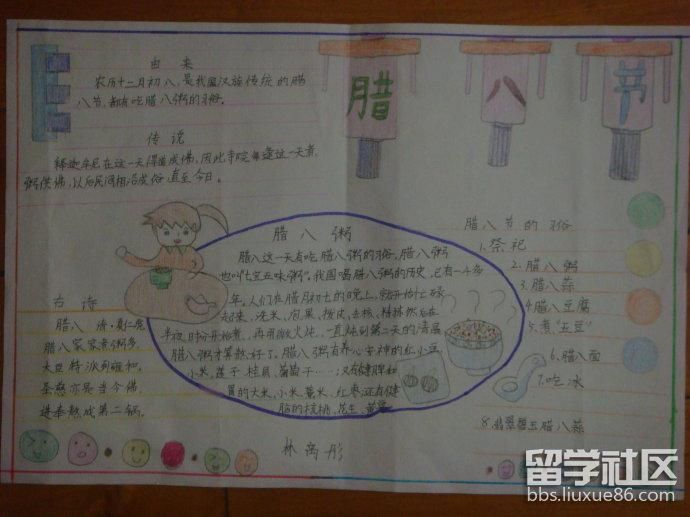 腊八节
由来
农历十二月初八,是我国汉族传统的腊
八节,都有吃腊八粥的习俗。
传说
释迦牟尼在这一天得道成佛,因此寺院每逢这一天煮
粥供佛,以后民间相沿成俗,直至今日。
腊八粥
腊八这一天有吃腊八粥的习俗,腊八粥
也叫"七宝五味粥"。我国喝腊八粥的历史,已有一千多
年。人们在腊月初七的晚上,就开始忙碌
起来,洗米、泡果、拨皮、去核、精拣然后在
半夜时分开始煮,再用微火炖,一直炖到第二天的清晨
腊八粥才算熬好了。腊八粥有养心安神的红小豆
小米,莲子,桂圆,葡萄干……
胃的大米,小米,薏米,红枣还有健
脑的核桃,花生,黄豆
古诗
腊八 清·夏仁虎
腊八家家煮粥多,
大臣特派到雍和。
圣慈亦是当今佛,
进奉熬成第二锅。
腊八节的习俗
1.祭祀
2.腊八粥
3.腊八蒜
4.腊八豆腐
5.煮"五豆"
6.腊八面
7.吃冰
8.翡翠碧玉腊八蒜
林禹彤
留学社区
bbs.liuxue86.com